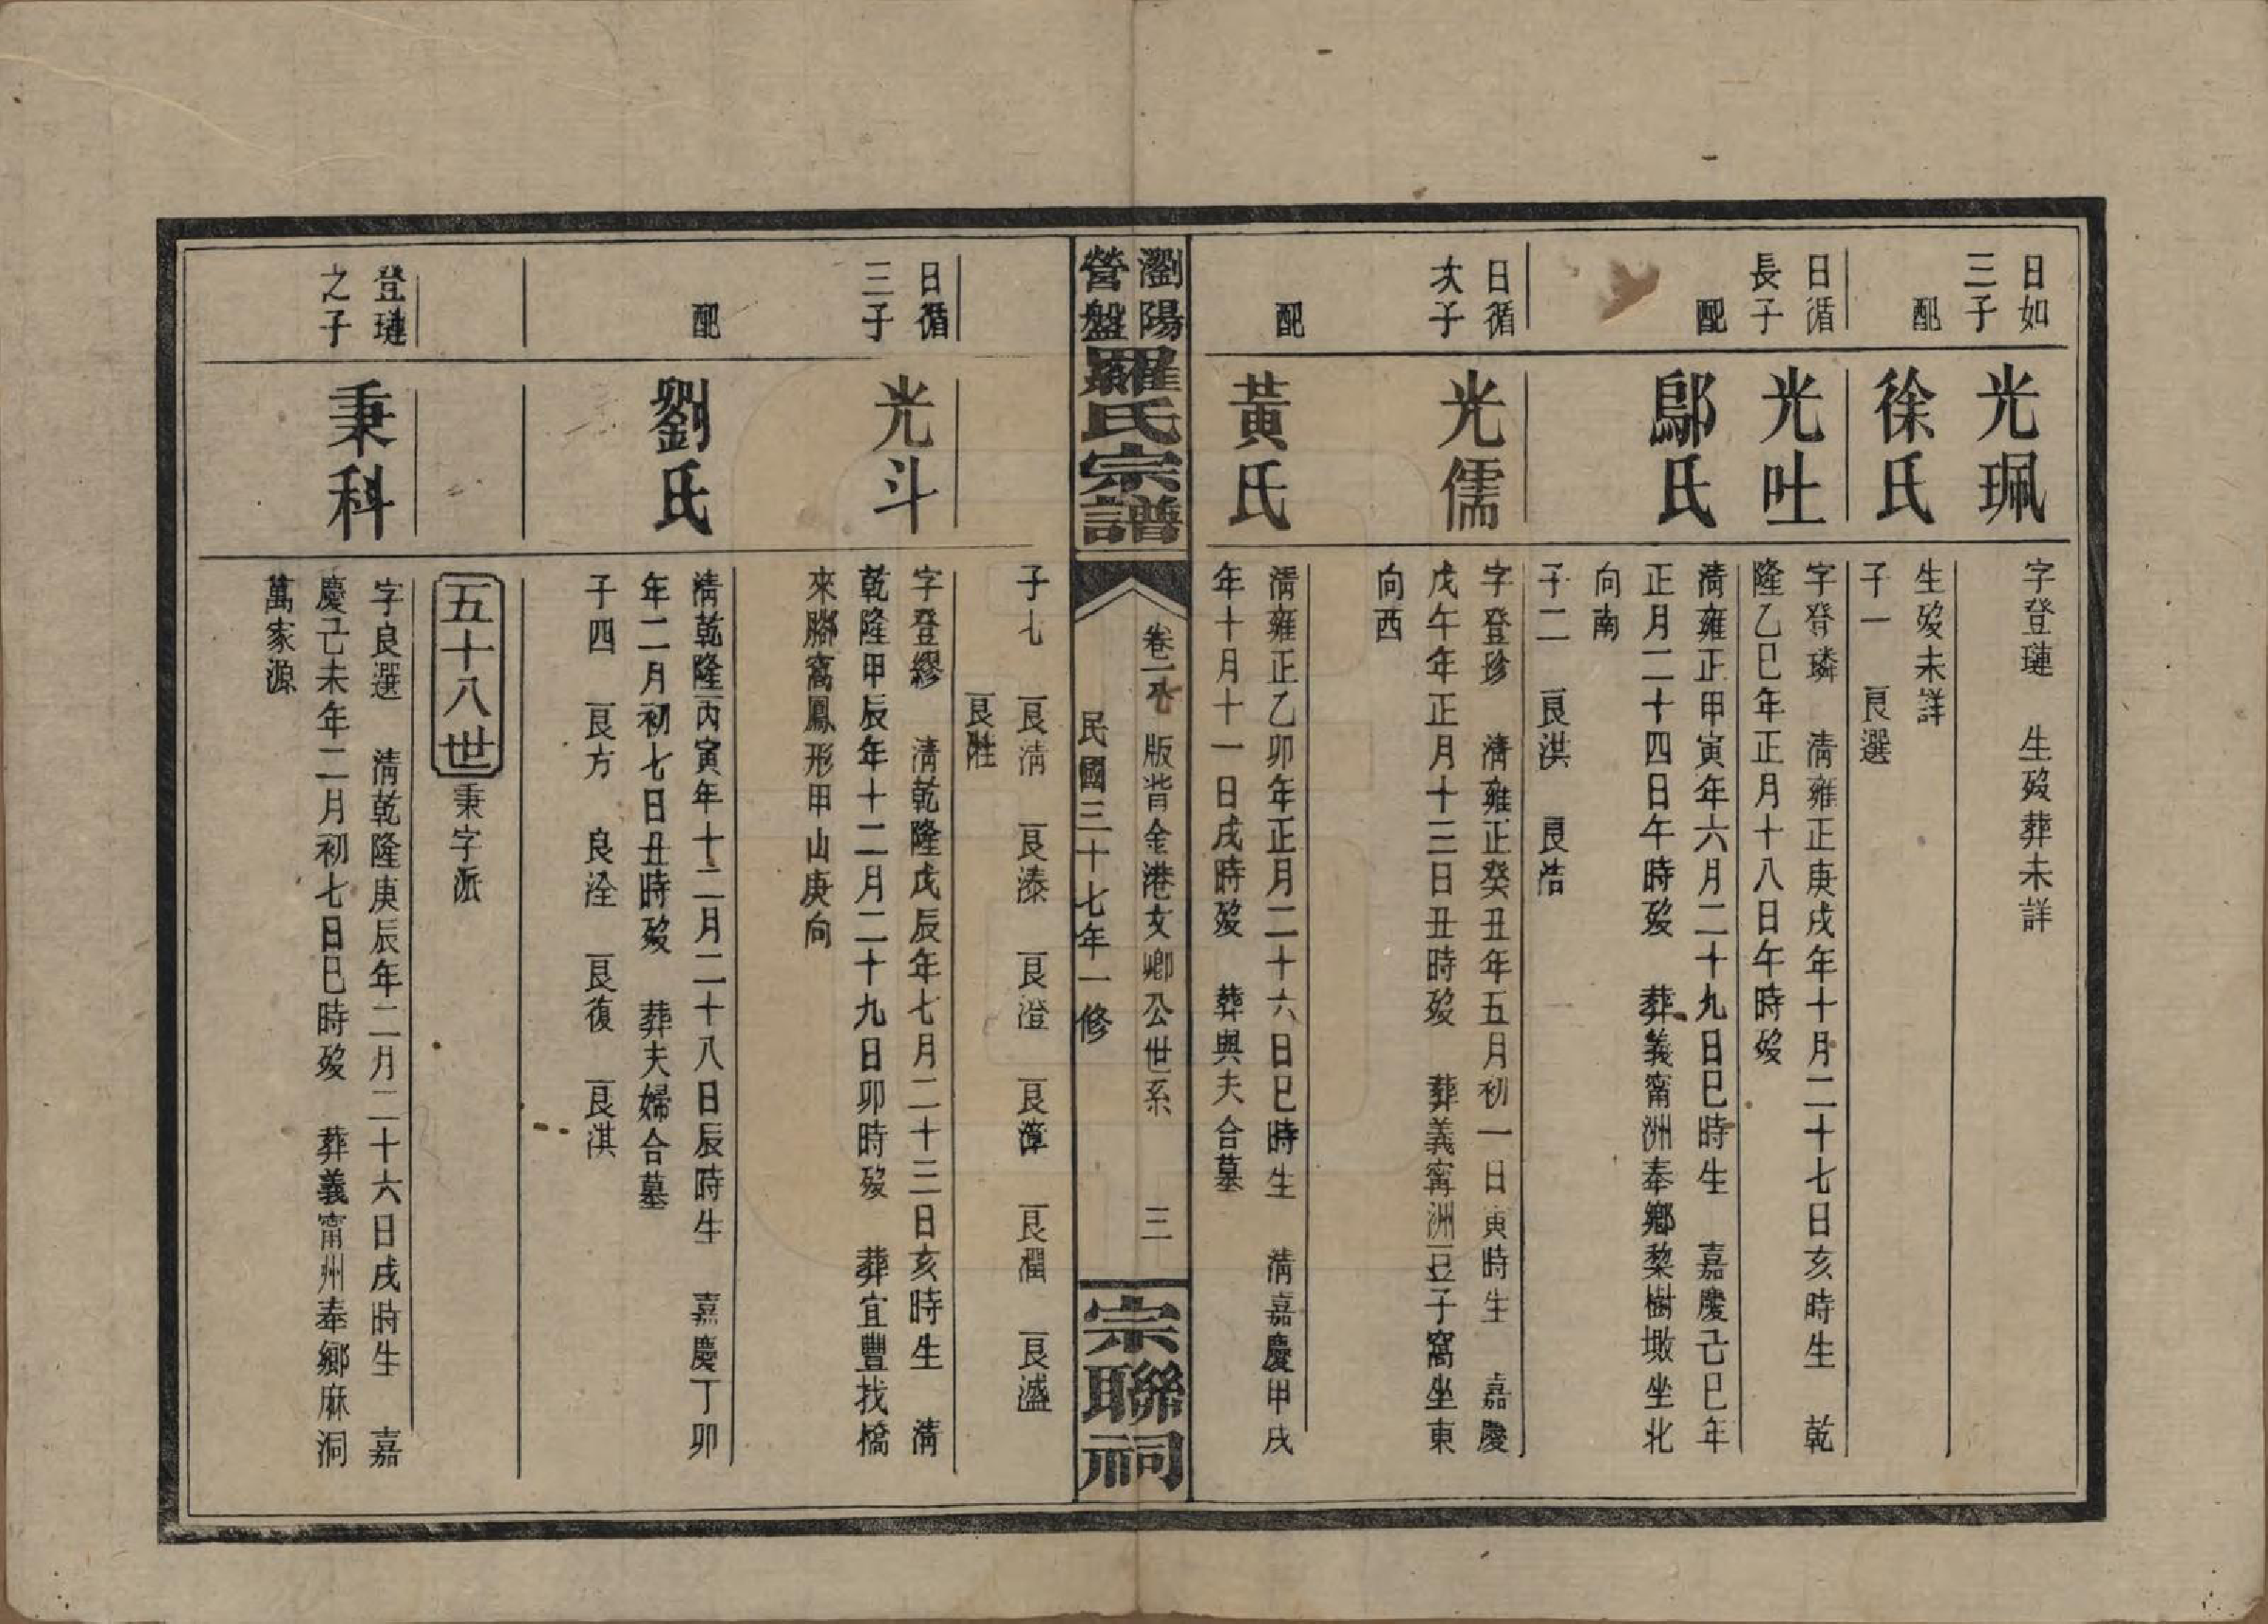 日如
三子
光珮
字登璉　生歿葬未詳
配
徐氏
生歿未詳
子一　良選
日循
長子
光吐
字登璘　清雍正庚戌年十月二十七日亥時生　乾
隆乙巳年正月十八日午時歿
配
鄔氏
清雍正甲寅年六月二十九日巳時生　嘉慶己巳年
正月二十四日午時歿　葬義甯洲奉鄉棃樹墩坐北
向南
子二　良淇　良浩
日循
次子
光儒
字登珍　清雍正癸丑年五月初一日寅時生　嘉慶
戊午年正月十三日丑時歿　葬義甯洲豆子窩坐東
向西
配
黃氏
清雍正乙卯年正月二十六日巳時生　清嘉慶甲戌
年十月十一日戌時歿　葬與夫合墓
瀏陽
營盤
羅氏宗譜
版背金港文卿公世系　三
民國三十七年一修
宗聯祠
子七　良清　良漆　良澄　良漳　良濶　良盪
良甡
日循
三子
光斗
字登繆　清乾隆戊辰年七月二十三日亥時生　清
乾隆甲辰年十二月二十九日卯時歿　葬宜豐找橋
來腳窩鳳形甲山庚向
配
劉氏
清乾隆丙寅年十二月二十八日辰時生　嘉慶丁卯
年二月初七日丑時歿　葬夫婦合墓
子四　良方　良洤　良復　良淇
五十八世　秉字派
登璉
之子
秉科
字良選　清乾隆庚辰年二月二十六日戌時生　嘉
慶己未年二月初七日巳時歿　葬義甯州奉鄉麻洞
萬家源